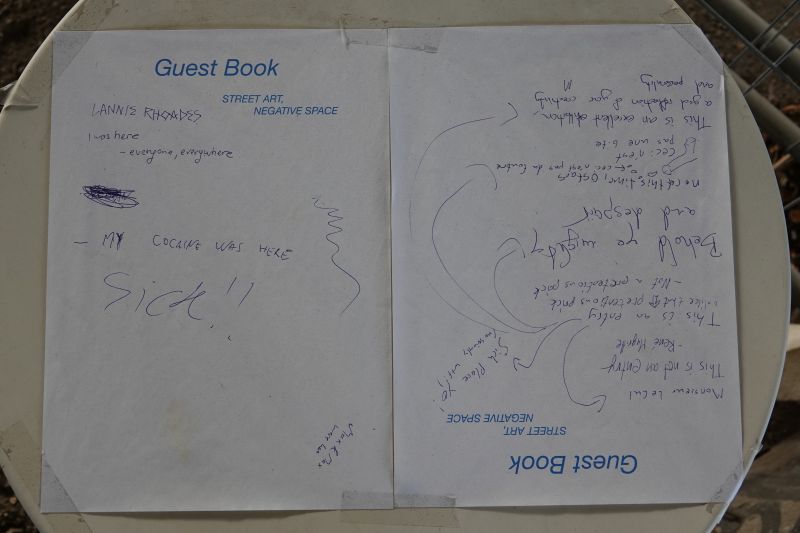 Guest Book
STREET ART,
NEGATIVE SPACE
LANNIE RHOADES
I was here
- everyone, everywhere
- MY COCAINE WAS HERE
SICK!!
Guest Book
STREET ART,
NEGATIVE SPACE
Monsieur Le Cul
This is not an entry
- René Magritte
This is an entry
- Not a pretentious prick
Sick Place Yo!
Behold ye mighty,
and despair
Ceci n'est
pas une
This is an excellent
a good reflection of your creativity
and personality